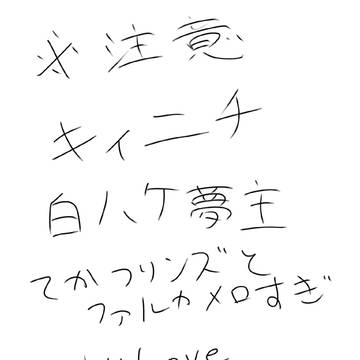 ※注意
キィニチ
白ハケ夢主
てかフリンズと
ファルカメロすぎ
Love